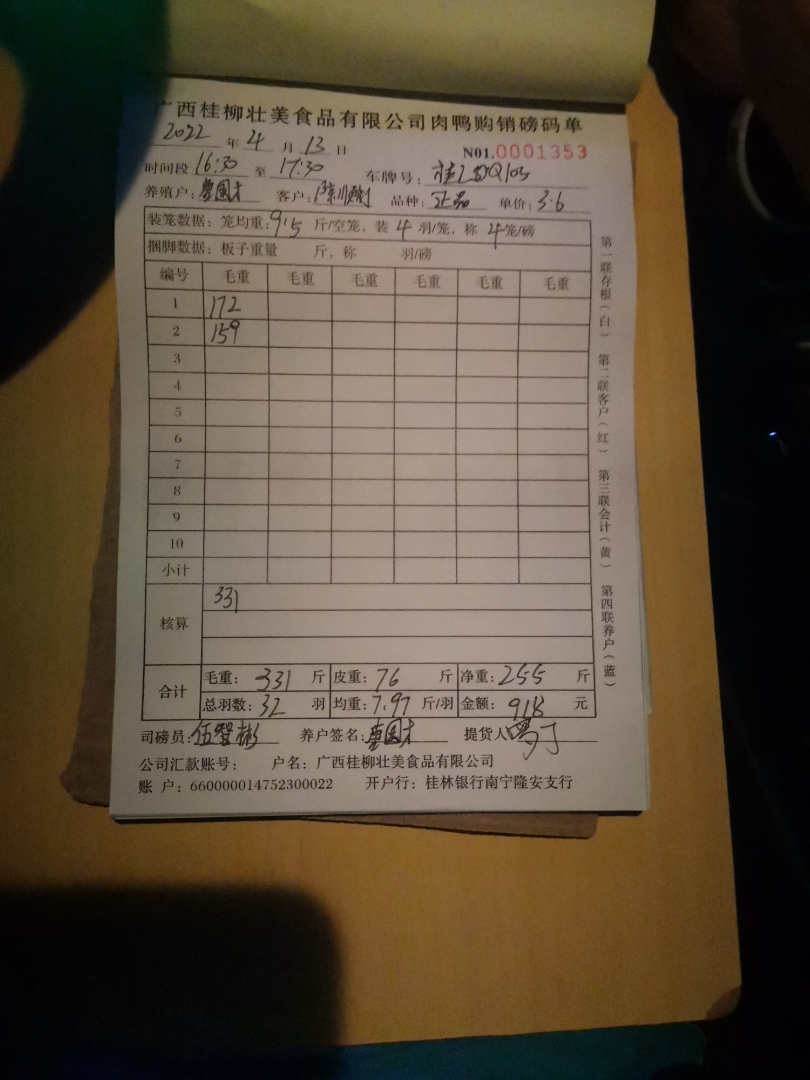 广西桂柳壮美食品有限公司肉鸭购销磅码单
2022 年 4 月 13 日 N01.0001353
时间段 16:30 至 17:30 车牌号:
养殖户: 客户: 品种: 正品 单价: 3.6
装笼数据: 笼均重: 9.5 斤/空笼, 装 4 羽/笼, 称 4 笼/磅
捆脚数据: 板子重量 斤, 称 羽/磅
编号 毛重 毛重 毛重 毛重 毛重 毛重
1 172
2 159
3
4
5
6
7
8
9
10
小计
核算 331
合计 毛重: 331 斤 皮重: 76 斤 净重: 255 斤
总羽数: 32 羽 均重: 7.97 斤/羽 金额: 918 元
司磅员: 伍智彬 养户签名: 提货人
公司汇款账号: 户名: 广西桂柳壮美食品有限公司
账 户: 660000014752300022 开户行: 桂林银行南宁隆安支行
第一联存根(白) 第二联客户(红) 第三联会计(黄) 第四联养户(蓝)